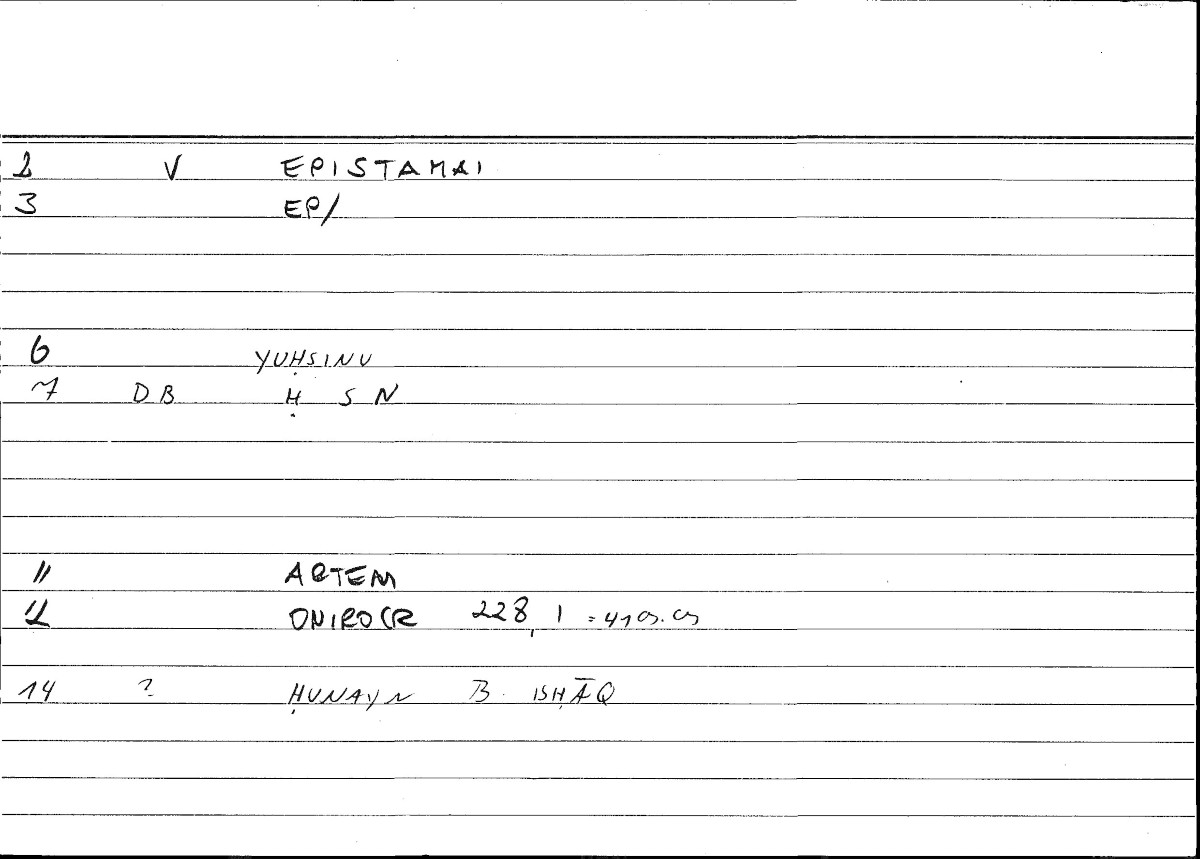 2 V EPISTAMAI
3 EP/
6 YUḤSINU
7 DB Ḥ S N
11 ARTEM
12 ONIROCR 228, 1 = 410
14 ? ḤUNAYN B. ISḤĀQ